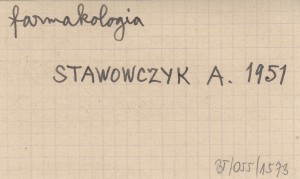 farmakologia
STAWOWCZYK A. 1951
35/055/1573